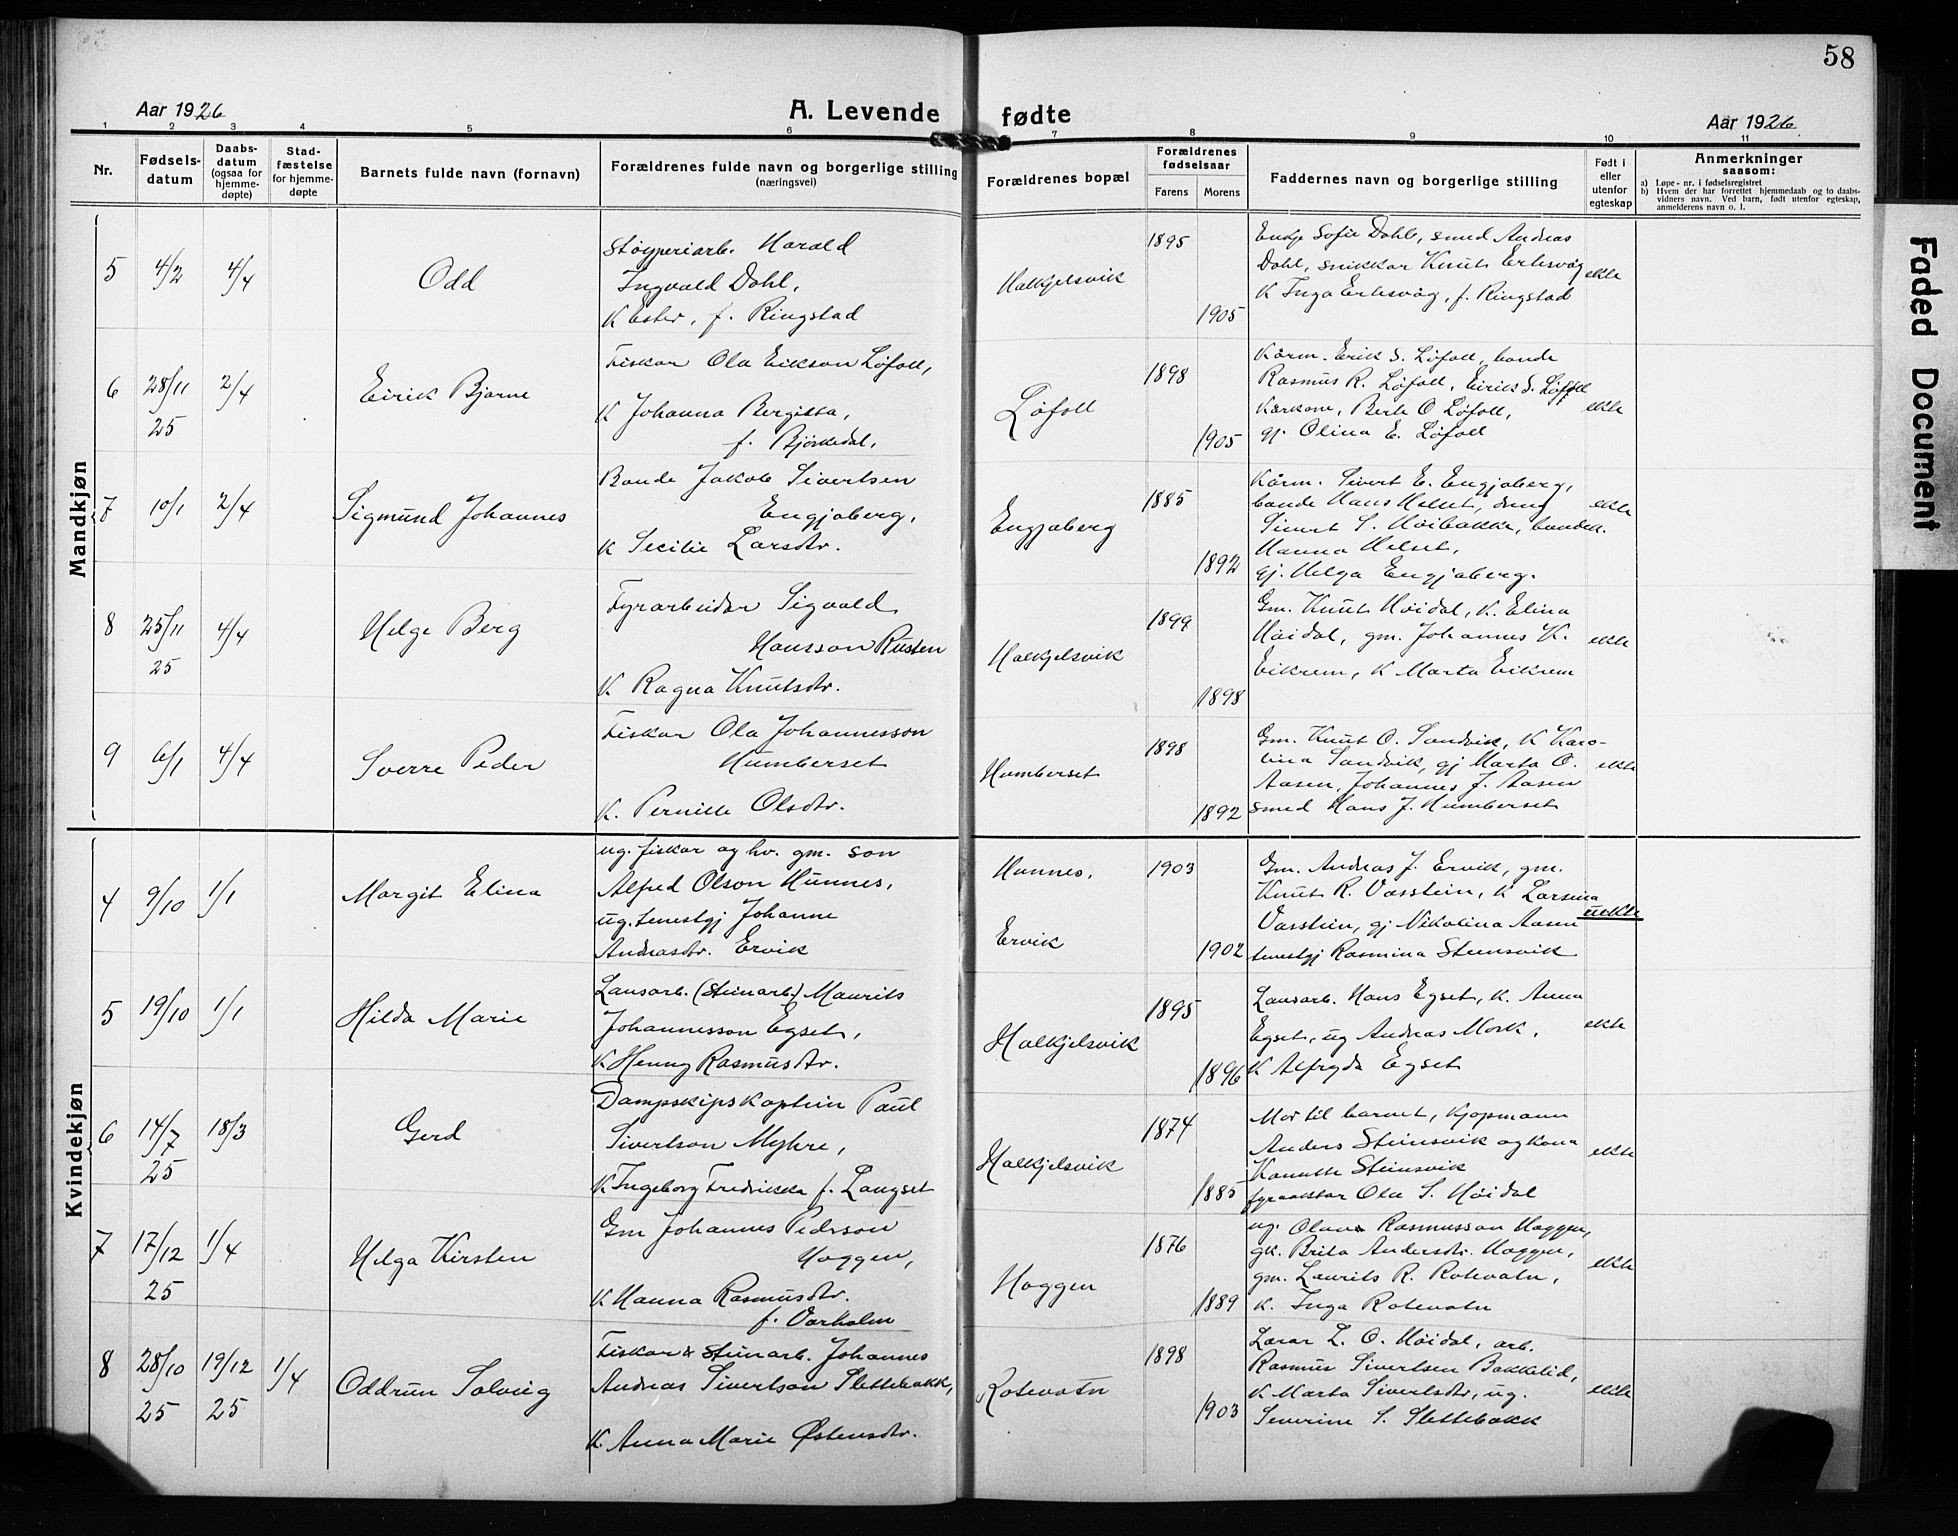 58
Aar 1926
A. Levende fødte
Aar 1926
1 2 3 4 5 6 7 8 9 10 11
Nr.
Fødsels-
datum
Daabs-
datum
(ogsaa for
hjemme-
døpte)
Stad-
fæstelse
for hjemme-
døpte
Barnets fulde navn (fornavn)
Forældrenes fulde navn og borgerlige stilling
(næringsvei)
Forældrenes bopæl
Forældrenes
fødselsaar
Farens
Morens
Faddernes navn og borgerlige stilling
Født i
eller
utenfor
egteskap
Anmerkninger
saasom:
a) Løpe-nr. i fødselsregistret
b) Hvem der har forrettet hjemmedaab og to daabs-
vidners navn. Ved barn, født utenfor egteskap,
anmelderens navn o. l.
Faded Document
Mandkjøn
5 4/2 4/4
Odd
Støyperiarb. Harald
Ingvald Dahl,
K Ester, f. Ringstad
Halkjelsvik
1895
1905
Enkje Sofie Dahl, smed Andreas
Dahl, snikkar Knut Erkesvåg
K Inga Erkesvåg, f. Ringstad
ekte
6 28/11 2/4
25
Eirik Bjarne
Fiskar Ola Eikson Løfoll,
K Johanna Bergitta,
f. Bjørkedal,
Løfoll
1898
1905
Kårm. Erik S. Løfoll, bonde
Rasmus R. Løfoll, Eirik S. Løfoll
Kårkone, Berte O Løfoll,
gj. Olina E. Løfoll
ekte
7 10/1 2/4
Sigmund Johannes
Bonde Jakob Sivertsen
Engjaberg,
K Secilie Larsdtr.
Engjaberg
1885
1892
Kårm. Sivert E. Engjaberg,
bonde Hans Helset, dreng
Sivert S. Høibakke, bondek.
Hanna Helset,
gj. Helga Engjaberg.
ekte
8 25/11 4/4
25
Helge Berg
Fyrarbeidar Sigvald
Hansson Rusten
K Ragna Knutsdtr.
Halkjelsvik
1899
1898
Gm. Knut Høidal, K. Elina
Høidal, gm. Johannes K.
Eikrem, K Marta Eikrem
ekte
9 6/1 4/4
Sverre Peder
Fiskar Ola Johannesson
Humberset
K. Pernille Olsdtr.
Humberset
1898
1892
Gm. Knut O. Sandvik, K Karo-
lina Sandvik, gj Marta O.
Aasen, Johannes J. Aasen
smed Hans J. Humberset
ekte
Kvindekjøn
4 9/10 1/1
Margit Elina
ug. fiskar og hv. gm. son
Alfred Olson Hunnes,
ug. tenestgj Johanne
Andreasdtr. Ervik
Hunnes,
Ervik
1903
1902
Gm. Andreas J. Ervik, gm.
Knut R. Vasstein, K Larsina
Vasstein, gj Nikolina Aasen
tenestgj Rasmina Steinsvik
uekte
5 19/10 1/1
Hilda Marie
Lausarb. (Steinarb.) Maurits
Johannesson Egset,
K Henny Rasmusdtr.
Halkjelsvik
1895
1896
Lausarb. Hans Egset, K. Anna
Egset, ug Andreas Mork,
K Alfryda Egset
ekte
6 14/7 18/3
25
Gerd
Dampskipskaptein Paul
Sivertson Myhre,
K Ingeborg Fredrikka f. Langset
Halkjelsvik
1874
1885
Mor til barnet, kjøpmann
Anders Steinsvik og kona
Kanutte Steinsvik
fyraktar Ola S. Høidal
ekte
7 17/12 1/4
25
Helga Kirsten
Gm Johannes Pederson
Hoggen,
K Hanna Rasmusdtr.
f. Vartholm
Hoggen
1876
1889
ug. Olav Rasmusson Hoggen,
gk. Brita Andersdtr. Hoggen,
gm. Laurits R. Rotevatn,
K. Inga Rotevatn
ekte
8 28/10 19/12 1/4
25 25
Oddrun Solveig
Fiskar & steinarb. Johannes
Andreas Sivertson Slettebakk,
K. Anna Marie Østensdtr.
Rotevatn
1898
1903
Lærar L. O. Høidal, arb.
Rasmus Sivertsen Bakkelid,
K Marta Sivertsdtr, ug.
Severine S. Slettebakk
ekte